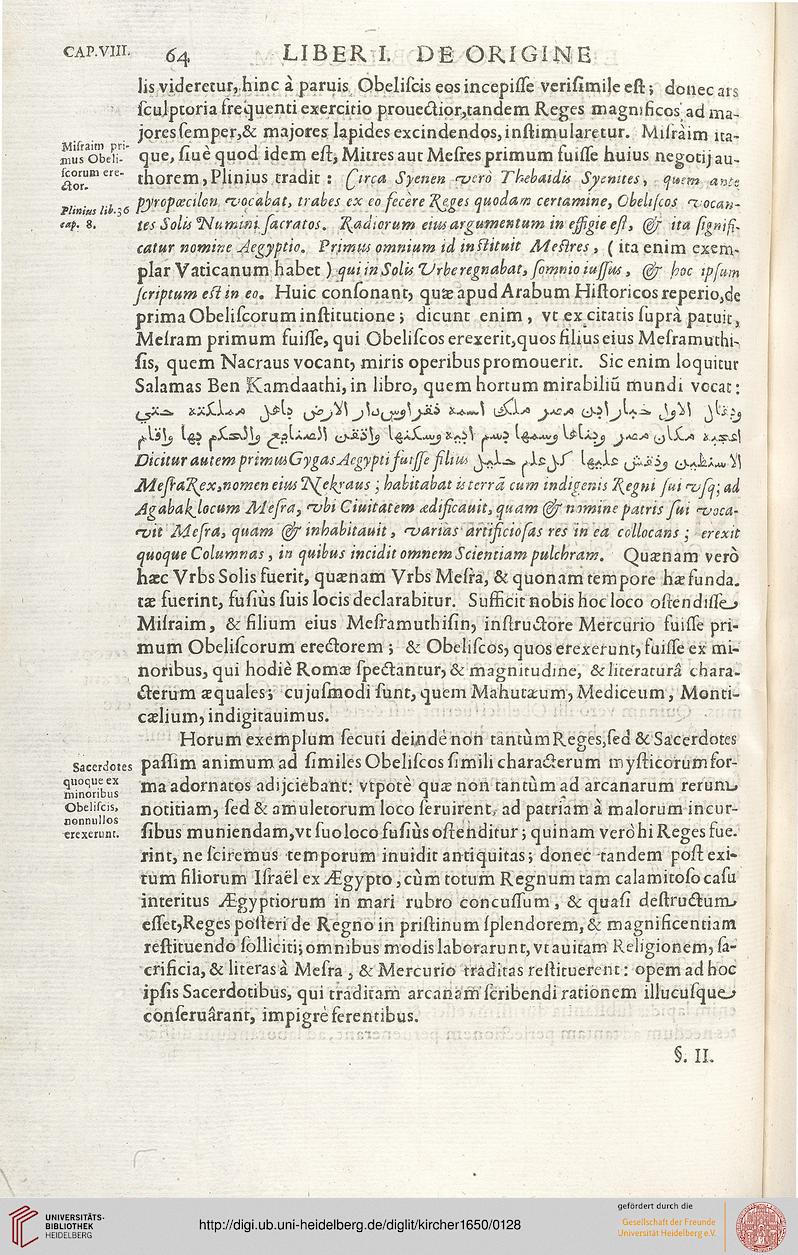 CAP.VIII. 64 LIBER I. DE ORIGINE
lis videretur, hinc à paruis Obeliſcis eos incepiſſe veriſimile eſt; donec ars
ſculptoria frequenti exercitio prouectior, tandem Reges magnificos ad ma-
jores ſemper, & majores lapides excindendos, inſtimularetur. Miſràim ita-
Miſraim pri-
mus Obeli-
ſcorum ere-
ctor.
que, ſiuè quod idem eſt, Mitres aut Meſres primum fuiſſe huius negotij au-
thorem, Plinius tradit : Circa Syenen verò Thebaidis Syenites, quem ante
Plinius lib.36
cap. 8.
pyropœcilon vocabat, trabes ex eo fecere Reges quodam certamine, Obeliſcos vocan-
tes Solis Numini ſacratos. Radiorum eius argumentum in effigie eſt, & ita ſignifi-
catur nomine Aegyptio. Primus omnium id inſtituit Meſtres, ( ita enim exem-
plar Vaticanum habet ) qui in Solis Vrbe regnabat, ſomnio iuſſus, & hoc ipſum
ſcriptum eſt in eo. Huic conſonant, quæ apud Arabum Hiſtoricos reperio, de
prima Obeliſcorum inſtitutione ; dicunt enim, vt ex citatis ſuprà patuit,
Meſram primum fuiſſe, qui Obeliſcos erexerit, quos filius eius Meſramuthi-
ſis, quem Nacraus vocant, miris operibus promouerit. Sic enim loquitur
Salamas Ben Kamdaathi, in libro, quem hortum mirabiliū mundi vocat:
الاول مصر ملك اسمه الارض
مكان مصر وبناها وسمها باسم ابيه وسكنها لها واقام
Dicitur autem primus Gygas Aegypti fuiſſe filius
Meſra Rex, nomen eius Nekraus ; habitabat is terrā cum indigenis Regni ſui vſq; ad
Agabak locum Meſra, vbi Ciuitatem ædificauit, quam & nomine patris ſui voca-
vit Meſra, quam & inhabitauit, varias artificioſas res in ea collocans ; erexit
quoque Columnas, in quibus incidit omnem Scientiam pulchram. Quænam verò
hæc Vrbs Solis fuerit, quænam Vrbs Meſra, & quonam tempore hæ funda-
tæ fuerint, fuſiùs ſuis locis declarabitur. Sufficit nobis hoc loco oſtendiſſe
Miſraim, & filium eius Meſramuthiſin, inſtructore Mercurio fuiſſe pri-
mum Obeliſcorum erectorem ; & Obeliſcos, quos erexerunt, fuiſſe ex mi-
noribus, qui hodiè Romæ ſpectantur, & magnitudine, & literaturâ chara-
cterum æquales; cujuſmodi ſunt, quem Mahutæum, Mediceum, Monti-
cælium, indigitauimus.
Horum exemplum ſecuti deindè non tantùm Reges, ſed & Sacerdotes
Sacerdotes
quoque ex
minoribus
Obeliſcis,
nonnullos
erexerunt.
paſſim animum ad ſimiles Obeliſcos ſimili characterum myſticorum for-
ma adornatos adijciebant: vtpotè quæ non tantùm ad arcanarum rerum
notitiam, ſed & amuletorum loco ſeruirent, ad patriam à malorum incur-
ſibus muniendam, vt ſuo loco fuſiùs oſtenditur; quinam verò hi Reges fue-
rint, ne ſciremus temporum inuidit antiquitas; donec tandem poſt exi-
tum filiorum Iſraël ex Ægypto, cùm totum Regnum tam calamitoſo caſu
interitus Ægyptiorum in mari rubro concuſſum, & quaſi deſtructum
eſſet, Reges poſteri de Regno in priſtinum ſplendorem, & magnificentiam
reſtituendo ſolliciti; omnibus modis laborarunt, vt auitam Religionem, ſa-
crificia, & literas à Meſra, & Mercurio traditas reſtituerent: opem ad hoc
ipſis Sacerdotibus, qui traditam arcanam ſcribendi rationem illucuſque
conſeruârant, impigrè ferentibus.
§. II.
UNIVERSITÄTS-
BIBLIOTHEK
HEIDELBERG
http://digi.ub.uni-heidelberg.de/diglit/kircher1650/0128
gefördert durch die
Gesellschaft der Freunde
Universität Heidelberg e.V.